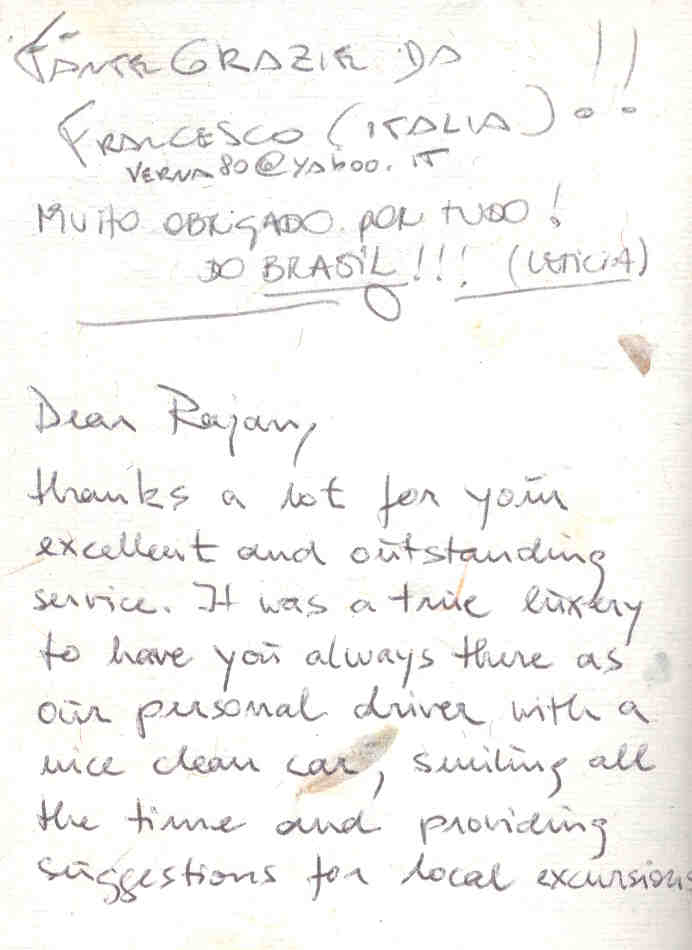 TANTE GRAZIE DA !!
FRANCESCO (ITALIA)
VERNA80@YAHOO.IT
MUITO OBRIGADO POR TUDO!
DO BRASIL!!! (LETICIA)
Dear Rajan,
thanks a lot for your
excellent and outstanding
service. It was a true luxery
to have you always there as
our personal driver with a
nice clean car, smiling all
the time and providing
suggestions for local excursions